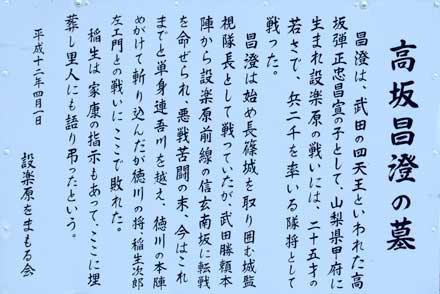 高坂昌澄の墓
昌澄は、武田の四天王といわれた高
坂弾正忠昌宣の子として、山梨県甲府に
生まれ設楽原の戦いには、二十五才の
若さで、兵二千を率いる隊将として
戦った。
昌澄は始め長篠城を取り囲む城監
視隊長として戦っていたが、武田勝頼本
陣から設楽原前線の信玄南坂に転戦
を命ぜられ、悪戦苦闘の末、今はこれ
までと単身連吾川を越え、徳川の本陣
めがけて斬り込んだが徳川の将稲生次郎
左エ門との戦いにここで敗れた。
稲生は家康の指示もあって、ここに埋
葬し里人にも語り弔ったという。
平成十二年四月一日
設楽原をまもる会